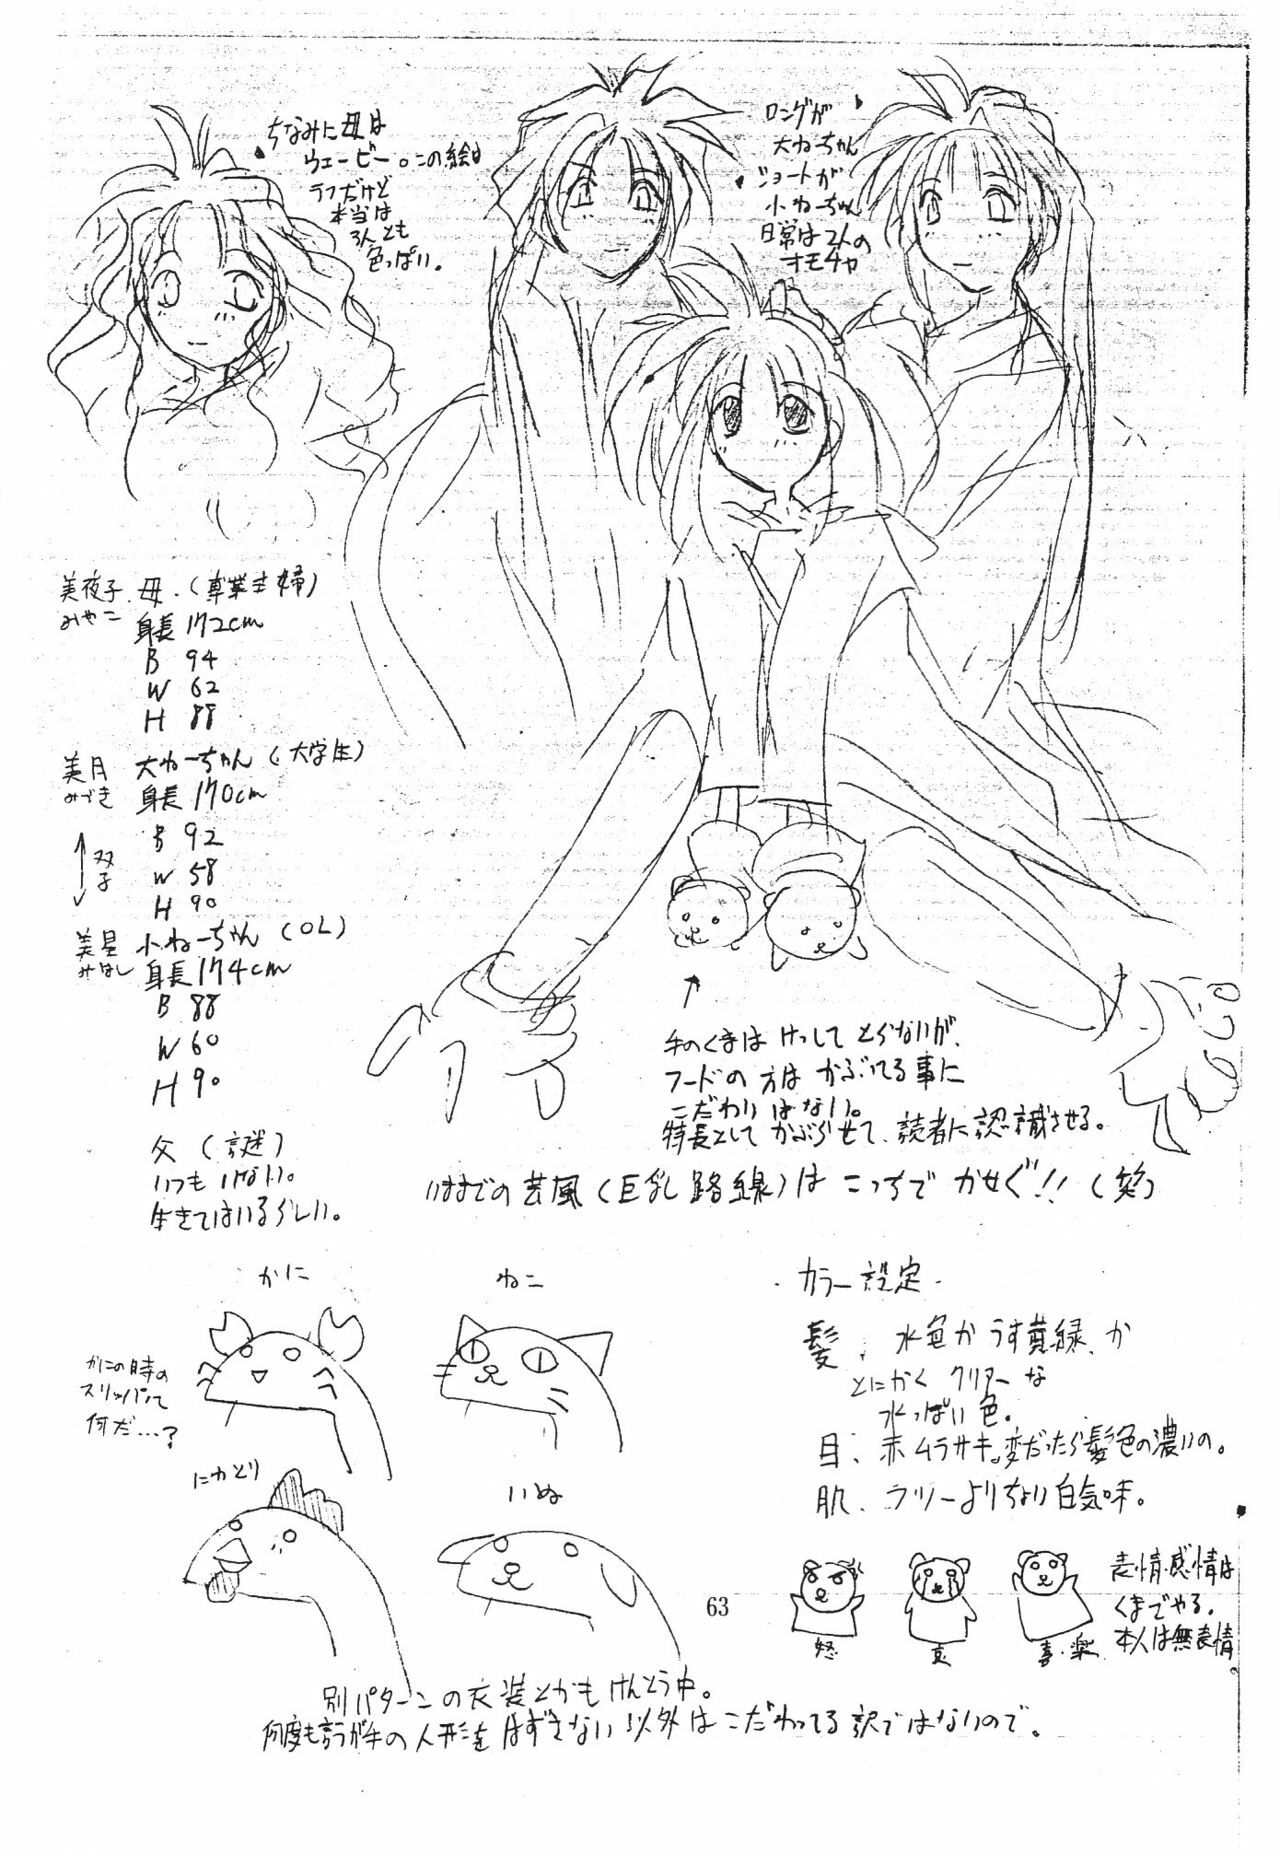 ちなみに母は
ウェービー。この絵は
ラフだけど
本当は
3人とも
色っぽい。
ロングが
大ねーちゃん
ショートが
小ねーちゃん
日常は2人の
オモチャ
美夜子 母.(専業主婦)
みやこ
身長 172cm
B 94
W 62
H 88
美月 大ねーちゃん(大学生)
みづき
身長 170cm
B 92
W 58
H 90
双子
美星 小ねーちゃん(OL)
みほし
身長 174cm
B 88
W 60
H 90
父(謎)
いつもいない。
生きてはいるらしい。
手のくまは けっして とらないが、
フードの方は かぶってる事に
こだわりはない。
特長として かぶらせて、読者に認識させる。
いままでの芸風(巨乳路線)は こっちで かせぐ!!(笑)
かに
ねこ
かにの時の
スリッパって
何だ…?
にわとり
いぬ
カラー設定
髪、水色か うす黄緑、か
とにかく クリアーな
水っぽい色。
目、赤ムラサキ。変だったら髪色の濃いの。
肌、ラツーよりちょい白気味。
怒
哀
喜・楽
表情・感情は
くまでやる。
本人は無表情。
63
別パターンの衣装とかもけんとう中。
何度も言うが手の人形をはずさない以外はこだわってる訳ではないので。